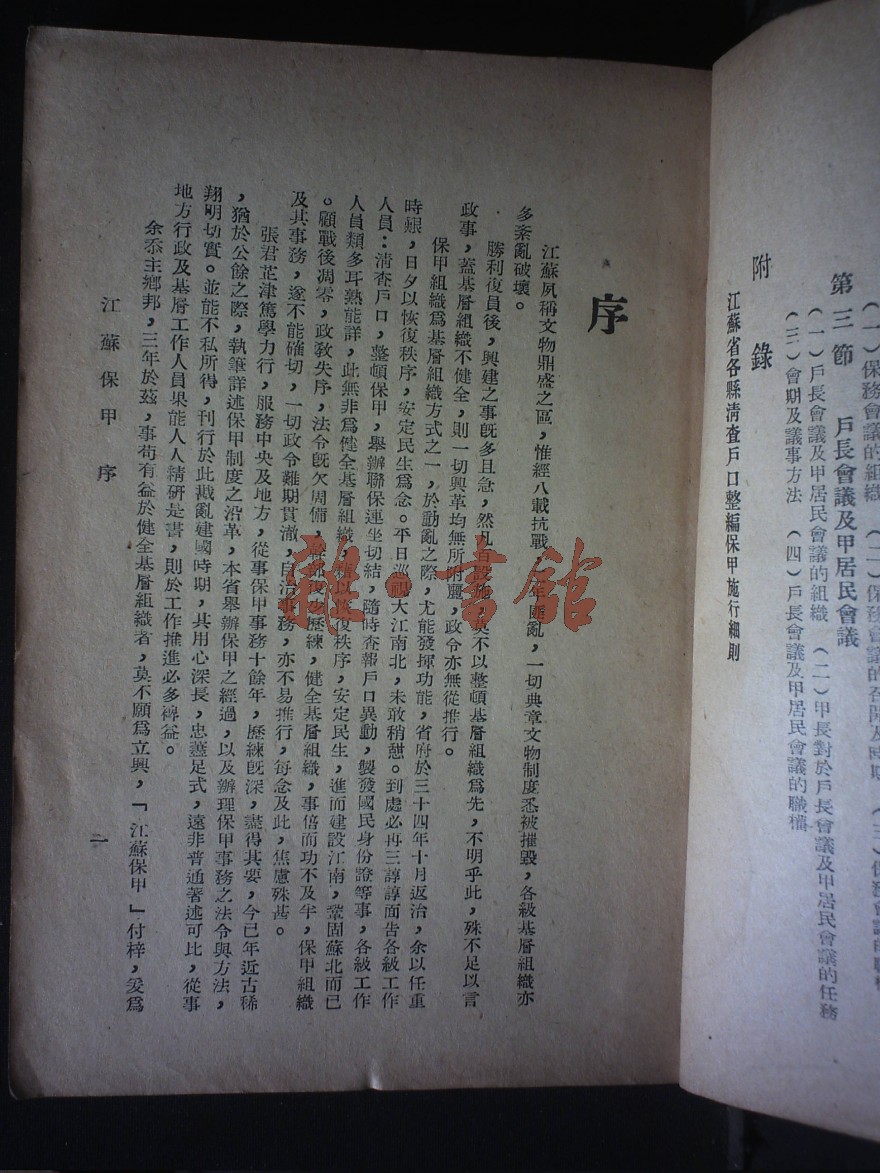 （一）保務會議的組織　（二）保務會議的召開及時
第三節　戶長會議及甲居民會議
（一）戶長會議及甲居民會議的組織　（二）甲長對於戶長會議及甲居民會議的任務
（三）會期及議事方法　（四）戶長會議及甲居民會議的職權
附　錄
江蘇省各縣清查戶口整編保甲施行細則
序
江蘇夙稱文物鼎盛之區，惟經八載抗戰，年匪亂，一切典章文物制度悉被摧毀，各級基層組織亦
多紊亂破壞。
勝利復員後，興建之事旣多且急，然凡百設施，莫不以整頓基層組織爲先，不明乎此，殊不足以言
政事，蓋基層組織不健全，則一切興革均無所附麗，政令亦無從推行。
保甲組織爲基層組織方式之一，於動亂之際，尤能發揮功能，省府於三十四年十月返治，余以任重
時艱，日夕以恢復秩序，安定民生爲念。平日巡視大江南北，未敢稍憩。到處必再三諄諄面告各級工作
人員：清查戶口，整頓保甲，舉辦聯保連坐切結，隨時查報戶口異動，製發國民身份證等事，各級工作
人員類多耳熟能詳，此無非爲健全基層組織，藉以恢復秩序，安定民生，進而建設江南，鞏固蘇北而已
。顧戰後凋零，政敎失序，法令旣欠周備，幹部復少歷練，健全基層組織，事倍而功不及半，保甲組織
及其事務，遂不能確切，一切政令難期貫澈，自治事務，亦不易推行，每念及此，焦慮殊甚。
張君芷津篤學力行，服務中央及地方，從事保甲事務十餘年，歷練旣深，盡得其要，今已年近古稀
，猶於公餘之際，執筆詳述保甲制度之沿革，本省舉辦保甲之經過，以及辦理保甲事務之法令與方法，
翔明切實。並能不私所得，刊行於此戡亂建國時期，其用心深長，忠藎足式，遠非普通著述可比，從事
地方行政及基層工作人員果能人人精研是書，則於工作推進必多裨益。
余忝主鄉邦，三年於茲，事苟有益於健全基層組織者，莫不願爲立興，「江蘇保甲」付梓，爰爲
江蘇保甲　序
一
雜·書館